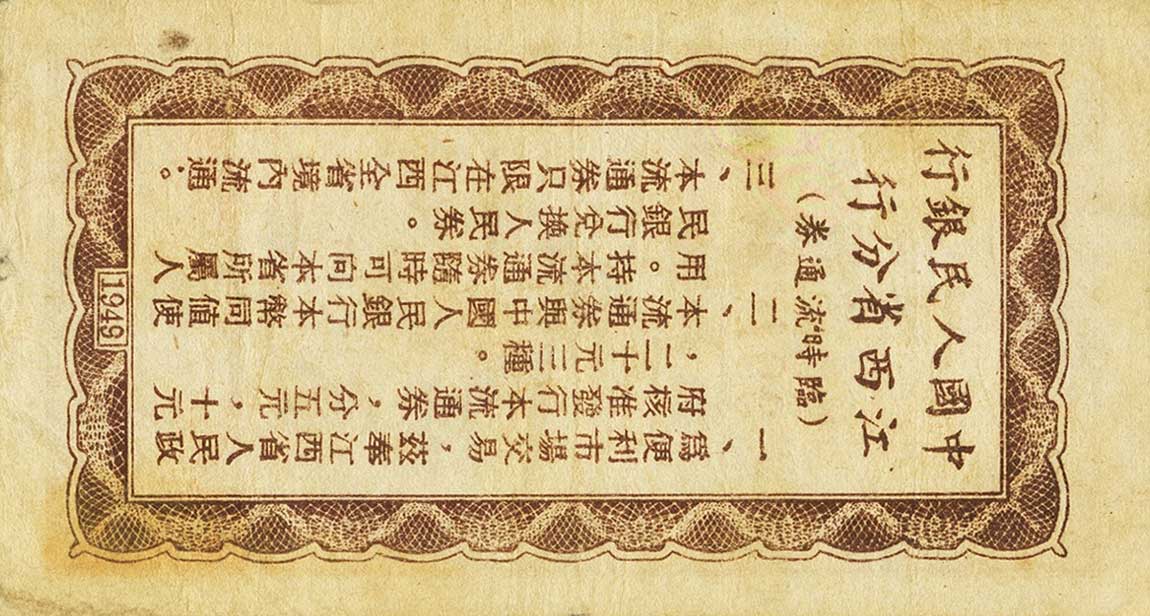 中國人民銀行
江西省分行
（臨時流通券）
一、爲便利市場交易，茲奉江西省人民政
府核准發行本流通券，分五元，十元
，二十元三種。
二、本流通券與中國人民銀行本幣同值使
用。持本流通券隨時可向本省所屬人
民銀行兌換人民券。
三、本流通券只限在江西全省境內流通。
1949